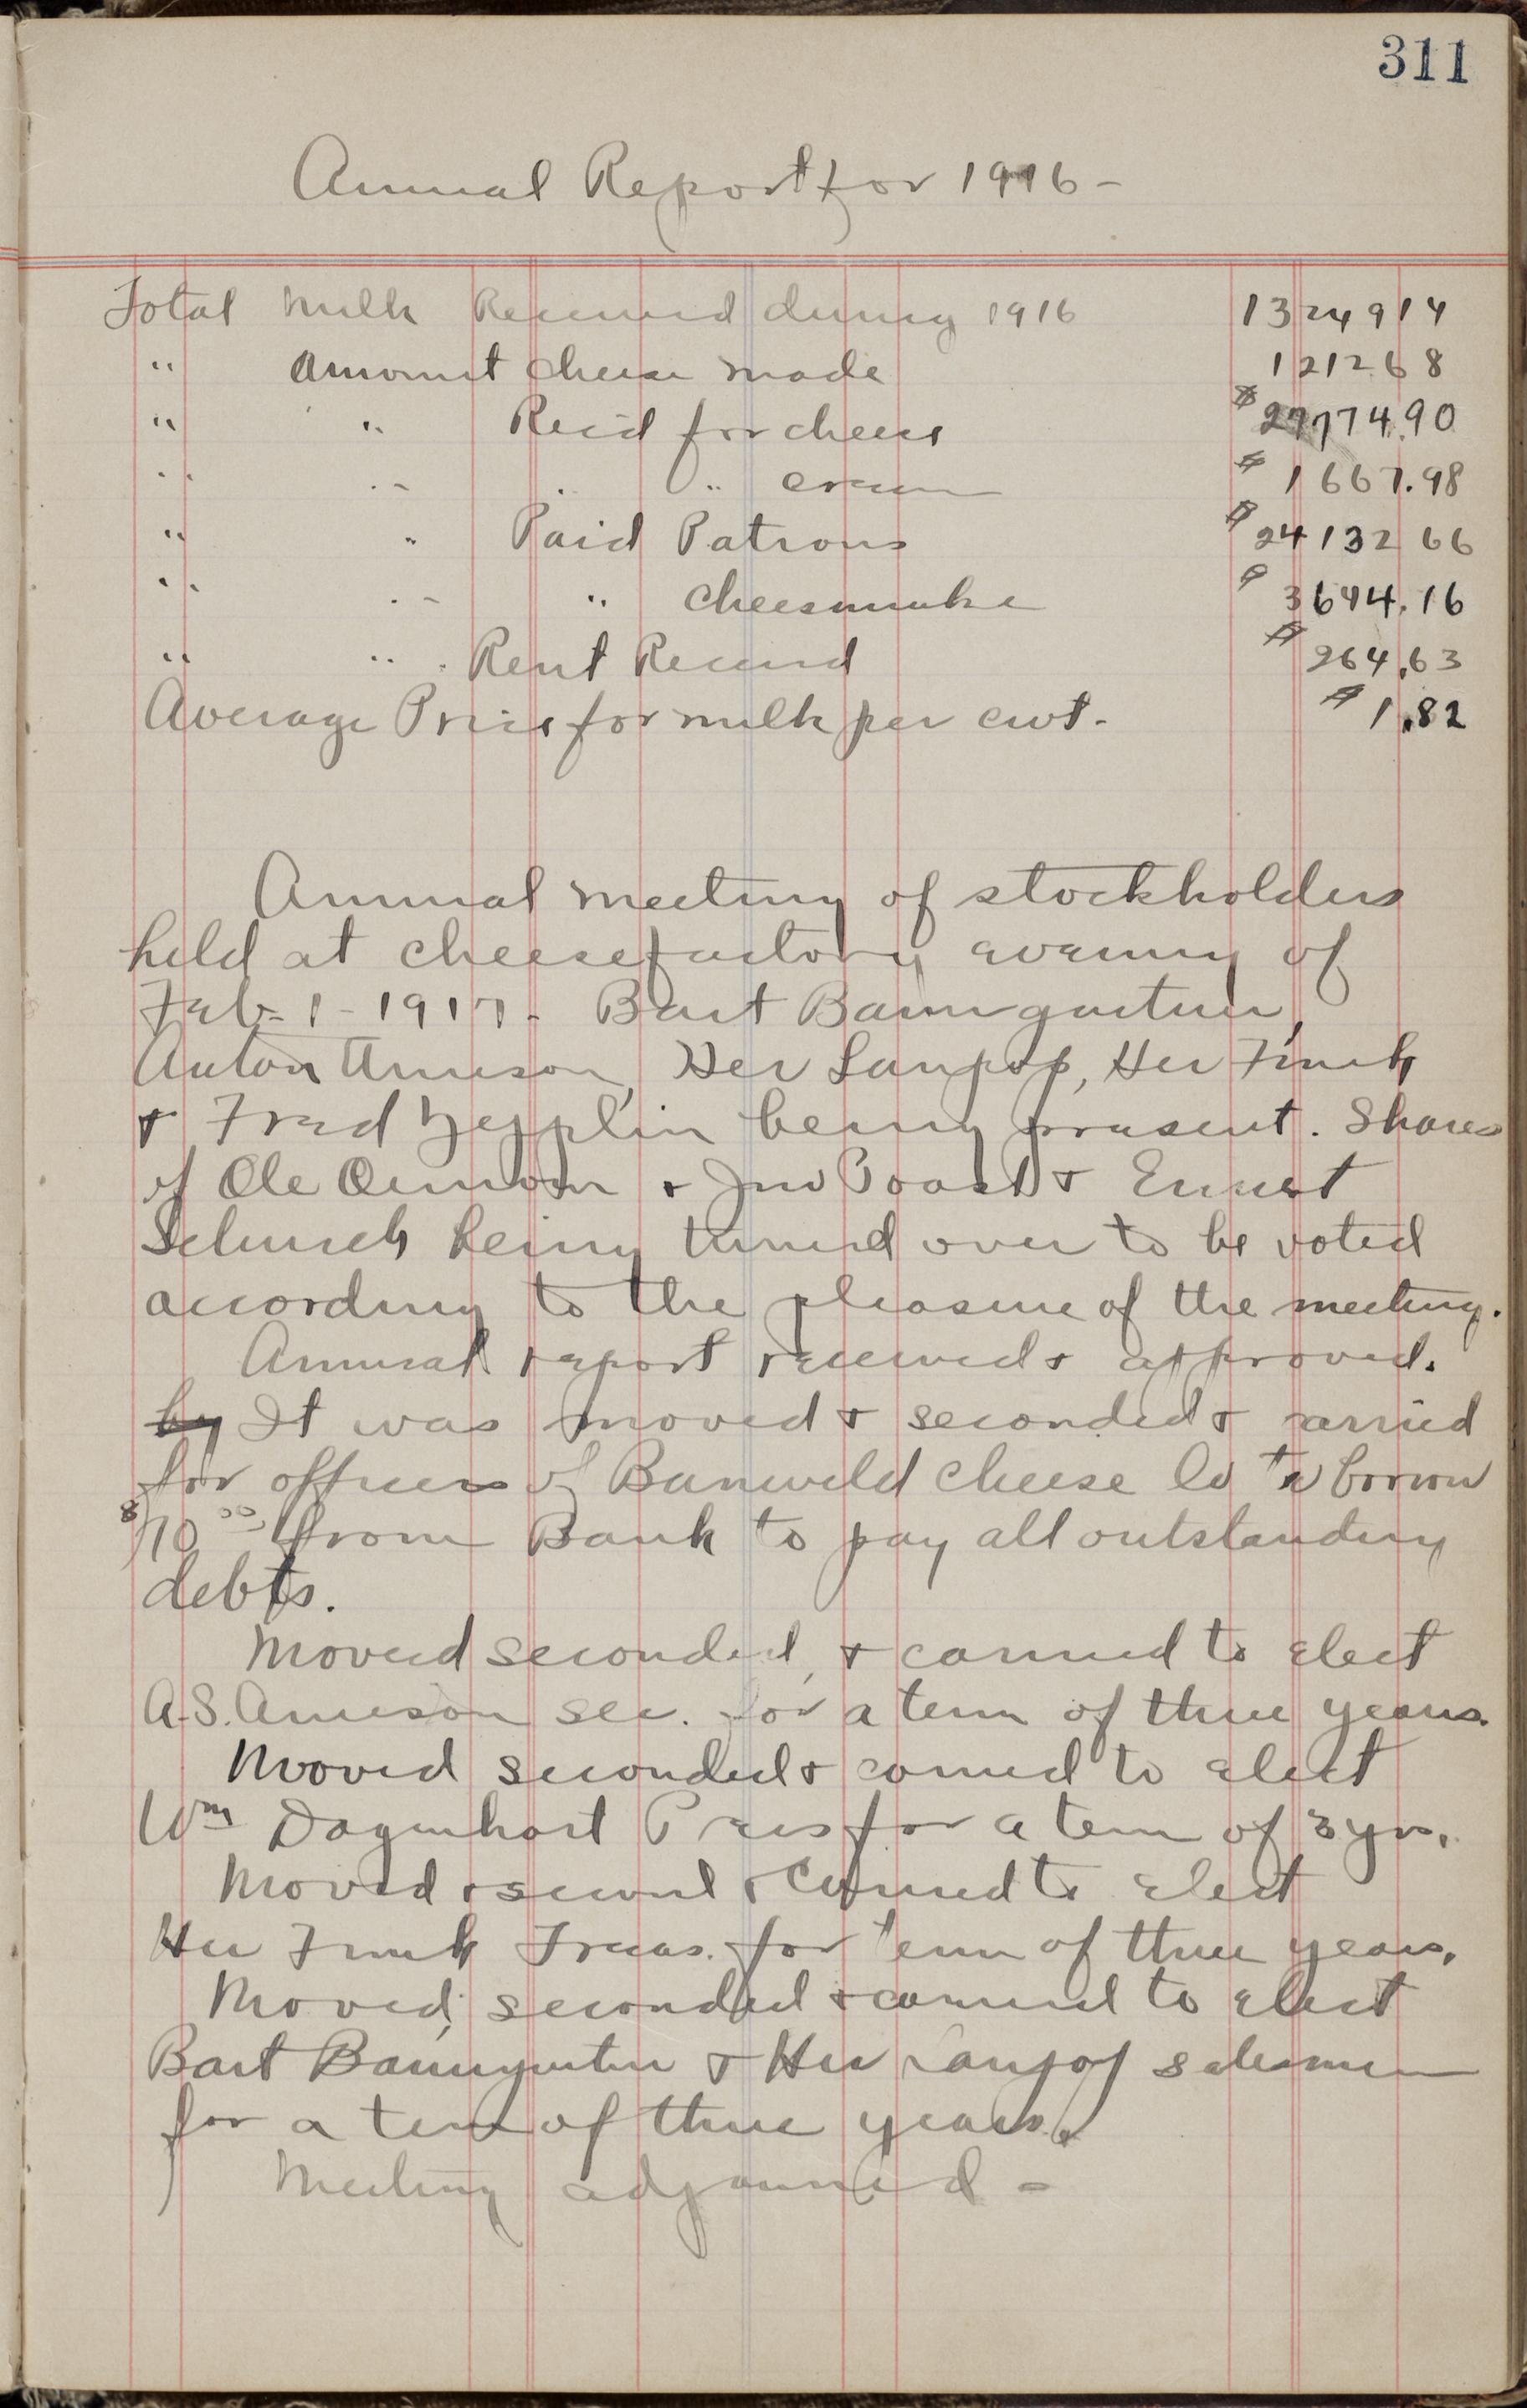 311
Annual Report for 1916 -
Total Milk Received during 1916 1324914
" Amount cheese made 121268
" " Rec'd for cheese $27774.90
" " " " cream $1667.98
" " Paid Patrons $24132 66
" " " cheesemaker $3644.16
" " Rent Received $264.63
Average Price for milk per cwt. $1.82
Annual meeting of stockholders
held at cheesefactory evening of
Feb - 1 - 1917. Bart Baumgartner,
Anton Arneson, Her Lanpop, Her Finck
& Fred Zepplin being present. Shares
of Ole & Jno Poast & Ernest
Schurch being turned over to be voted
according to the pleasure of the meeting.
Annual report received & approved.
by It was moved & seconded & carried
for officers of Banwild Cheese Co to borrow
from Bank to pay all outstanding
debts.
Moved seconded, & carried to elect
A.S. Arneson sec. for a term of three years.
Mooved seconded & carried to elect
Wm Dagenhart Pres for a term of 3 yrs.
Moved & second & carried to elect
Her Finck Treas. for term of three years.
Moved, seconded & carried to elect
Bart Baumgartner & Her Lanpop salesmen
for a term of three years.
Meeting adjourned -